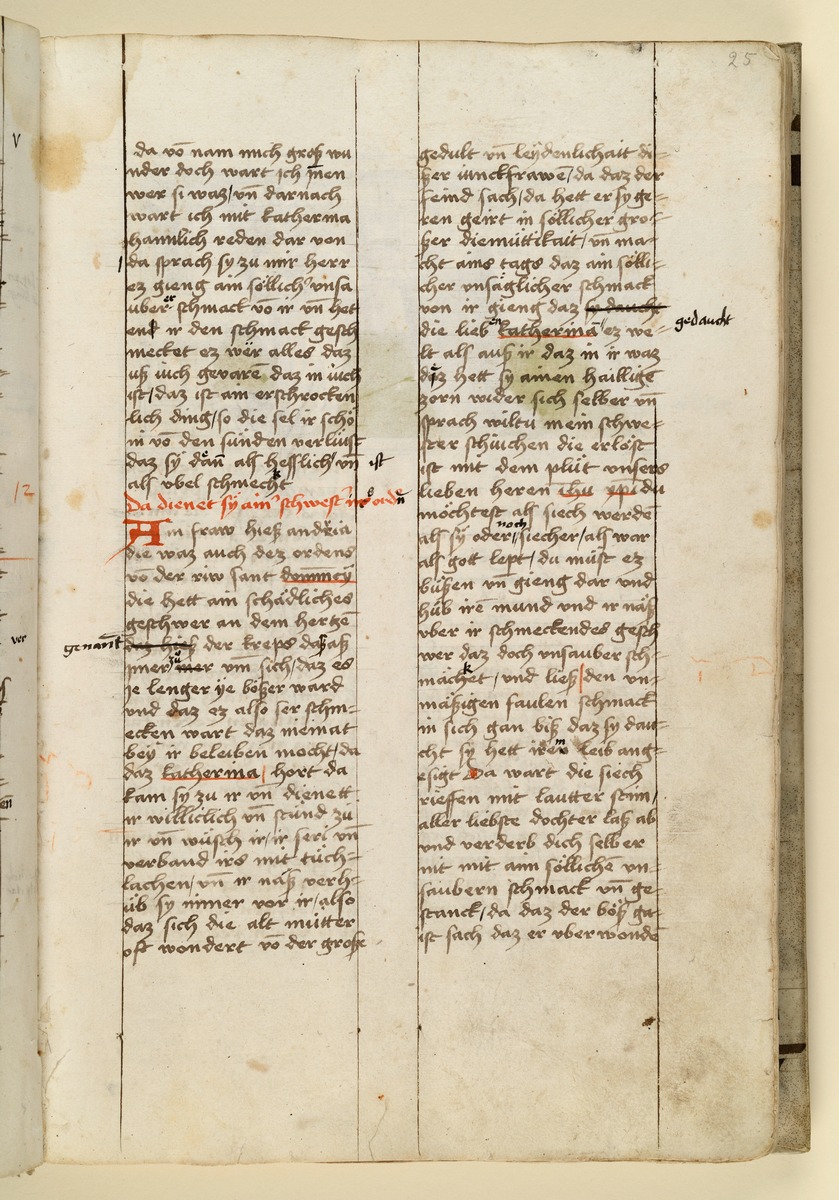 25
da vō nam mich groß wu
nder doch wart ich jnen
wer si waz / vn̄ darnach
wart ich mit katherina
haimlich reden dar von
da sprach sy zu mir herr
ez gieng ain söllich vnsa
über er schmack vō ir vn̄ het
ent ir den schmack gesch
mecket ez wër alles daz
uß iuch gevarē daz in iuch
ist / daz ist am erschrocken
lich ding / so die sel ir schö
ni vō den sünden verlüist
daz sy dan̄ als hesslich / vn̄ ist
als vbel schmeckt
Da dienet sy ain schwest irs ordē
Ain fraw hieß andria
die waz auch dez ordens
vō der riw sant dominey
die hett ain schädliches
geschwer an dem hertzē
genant daz hieß der kreps daß aß
jmer zu mer vm̄ sich / daz es
je lenger ye bößer ward
vnd daz ez also ser schm-
ecken wart daz niemat
bey ir beleiben mocht / da
daz katherina / hort da
kam sy zu ir vn̄ dienett
ir williclich vn̄ stund zu
ir vn̄ wüsch ir / ir seri vn̄
verband irs mit tüch-
lachen / vn̄ ir näß verh-
üb sy nimer vor ir / also
daz sich die alt mütter
oft wondert vō der große
gedult vn̄ leydenlichait di-
ßer iunckfrawē / da daz der
feind sach / da hett er sy ge-
ren geirt in söllicher gro-
ßer diemüttikait / vn̄ ma-
cht ains tags daz ain sölli-
cher vnsäglicher schmack
von ir gieng daz sy daucht gedaucht
die lieb en katherina / ez we-
lt als auß ir daz in ir waz
daz hett sy ainen hailligē
zorn wider sich selber vn̄
sprach wiltu mein schwe-
ster schiuchen die erlöst
ist mit dem plüt vnsers
lieben heren ihu xpi du
möchtest als siech werdē
als sy oder noch siecher / als war
als gott lept / du müst ez
büßen vn̄ gieng dar vnd
hüb irē mund vnd ir näß
vber ir schmeckendes gesch
wer daz doch vnsauber sch-
macket / vnd ließ / den vn-
mäßigen faulen schmack
in sich gan biß daz sy dau-
cht sy hett irem leib ang-
esigt Da wart die siech
rieffen mit lautter stim /
aller liebste dochter laß ab
vnd verderb dich selber
nit mit aim söllichē vn-
saubern schmack vn̄ ge-
stanck / da daz der böß ga-
ist sach daz er vber wondē